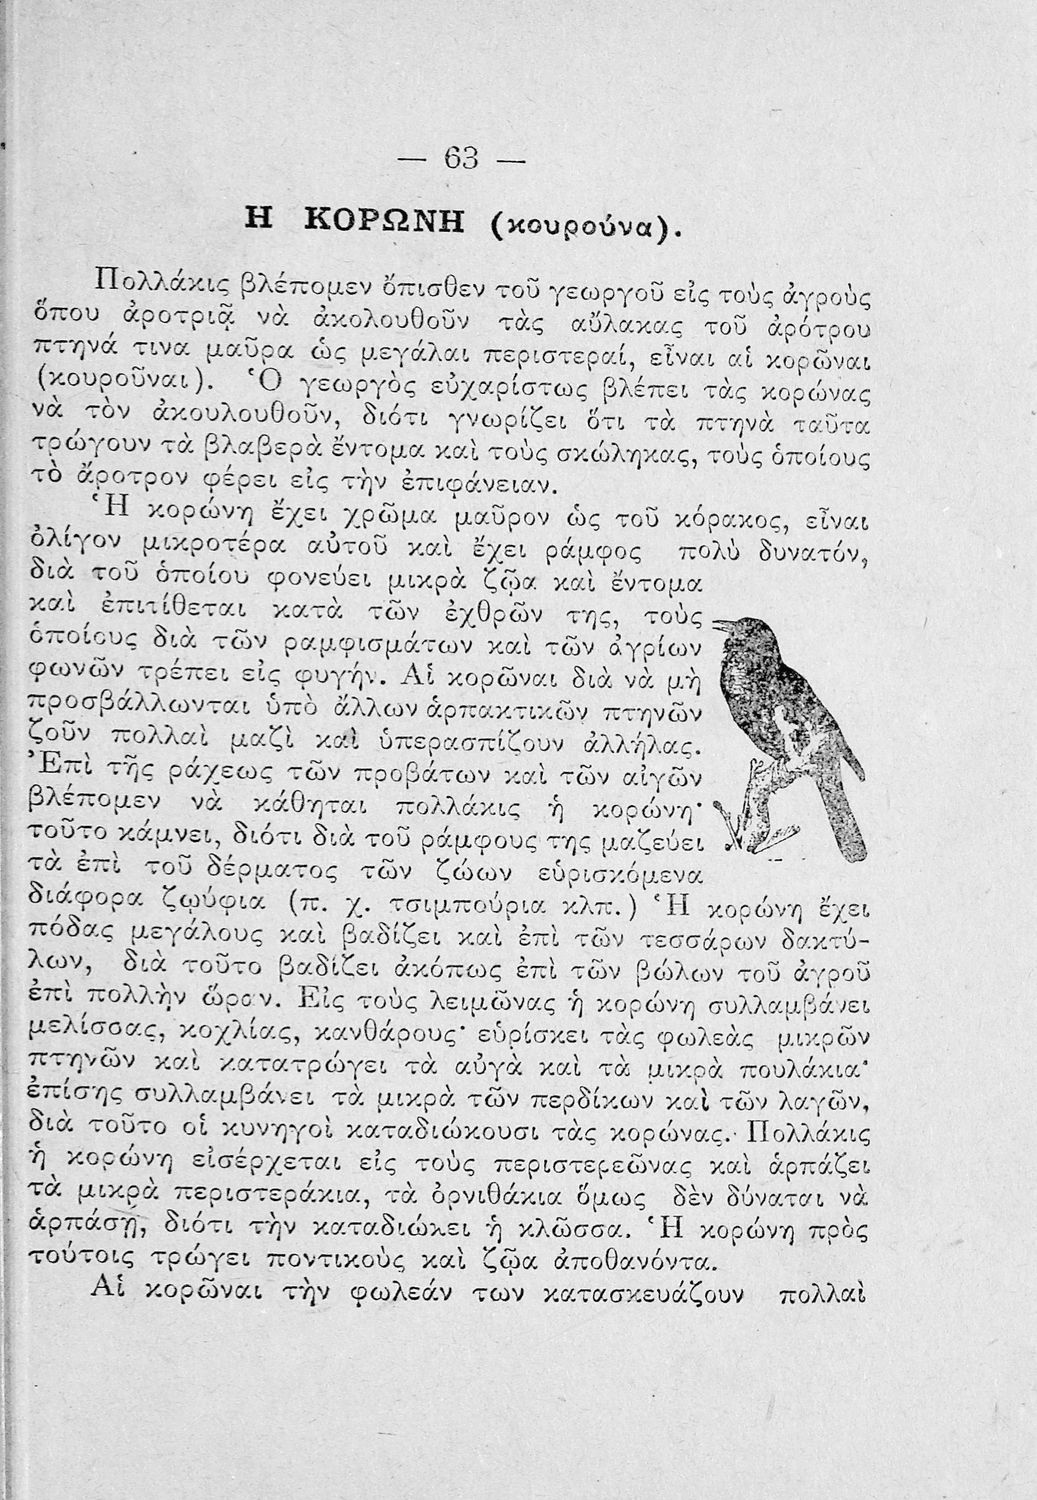 — 63 —
Η ΚΟΡΩΝΗ (κουρούνα).
Πολλάκις βλέπομεν ὄπισθεν τοῦ γεωργοῦ εἰς τοὺς ἀγροὺς
ὅπου ἀροτριᾷ νὰ ἀκολουθοῦν τὰς αὔλακας τοῦ ἀρότρου
πτηνά τινα μαῦρα ὡς μεγάλαι περιστεραί, εἶναι αἱ κορῶναι
(κουροῦναι). Ὁ γεωργὸς εὐχαρίστως βλέπει τὰς κορώνας
νὰ τὸν ἀκουλουθοῦν, διότι γνωρίζει ὅτι τὰ πτηνὰ ταῦτα
τρώγουν τὰ βλαβερὰ ἔντομα καὶ τοὺς σκώληκας, τοὺς ὁποίους
τὸ ἄροτρον φέρει εἰς τὴν ἐπιφάνειαν.
Ἡ κορώνη ἔχει χρῶμα μαῦρον ὡς τοῦ κόρακος, εἶναι
ὀλίγον μικροτέρα αὐτοῦ καὶ ἔχει ράμφος πολὺ δυνατόν,
διὰ τοῦ ὁποίου φονεύει μικρὰ ζῷα καὶ ἔντομα
καὶ ἐπιτίθεται κατὰ τῶν ἐχθρῶν της, τοὺς
ὁποίους διὰ τῶν ραμφισμάτων καὶ τῶν ἀγρίων
φωνῶν τρέπει εἰς φυγήν. Αἱ κορῶναι διὰ νὰ μὴ
προσβάλλωνται ὑπὸ ἄλλων ἁρπακτικῶν πτηνῶν
ζοῦν πολλαὶ μαζὶ καὶ ὑπερασπίζουν ἀλλήλας.
Ἐπὶ τῆς ράχεως τῶν προβάτων καὶ τῶν αἰγῶν
βλέπομεν νὰ κάθηται πολλάκις ἡ κορώνη·
τοῦτο κάμνει, διότι διὰ τοῦ ράμφους της μαζεύει
τὰ ἐπὶ τοῦ δέρματος τῶν ζώων εὑρισκόμενα
διάφορα ζῳύφια (π. χ. τσιμπούρια κλπ.) Ἡ κορώνη ἔχει
πόδας μεγάλους καὶ βαδίζει καὶ ἐπὶ τῶν τεσσάρων δακτύ-
λων, διὰ τοῦτο βαδίζει ἀκόπως ἐπὶ τῶν βώλων τοῦ ἀγροῦ
ἐπὶ πολλὴν ὥραν. Εἰς τοὺς λειμῶνας ἡ κορώνη συλλαμβάνει
μελίσσας, κοχλίας, κανθάρους· εὑρίσκει τὰς φωλεὰς μικρῶν
πτηνῶν καὶ κατατρώγει τὰ αὐγὰ καὶ τὰ μικρὰ πουλάκια·
ἐπίσης συλλαμβάνει τὰ μικρὰ τῶν περδίκων καὶ τῶν λαγῶν,
διὰ τοῦτο οἱ κυνηγοὶ καταδιώκουσι τὰς κορώνας. Πολλάκις
ἡ κορώνη εἰσέρχεται εἰς τοὺς περιστερεῶνας καὶ ἁρπάζει
τὰ μικρὰ περιστεράκια, τὰ ὀρνιθάκια ὅμως δὲν δύναται νὰ
ἁρπάσῃ, διότι τὴν καταδιώκει ἡ κλῶσσα. Ἡ κορώνη πρὸς
τούτοις τρώγει ποντικοὺς καὶ ζῷα ἀποθανόντα.
Αἱ κορῶναι τὴν φωλεάν των κατασκευάζουν πολλαὶ